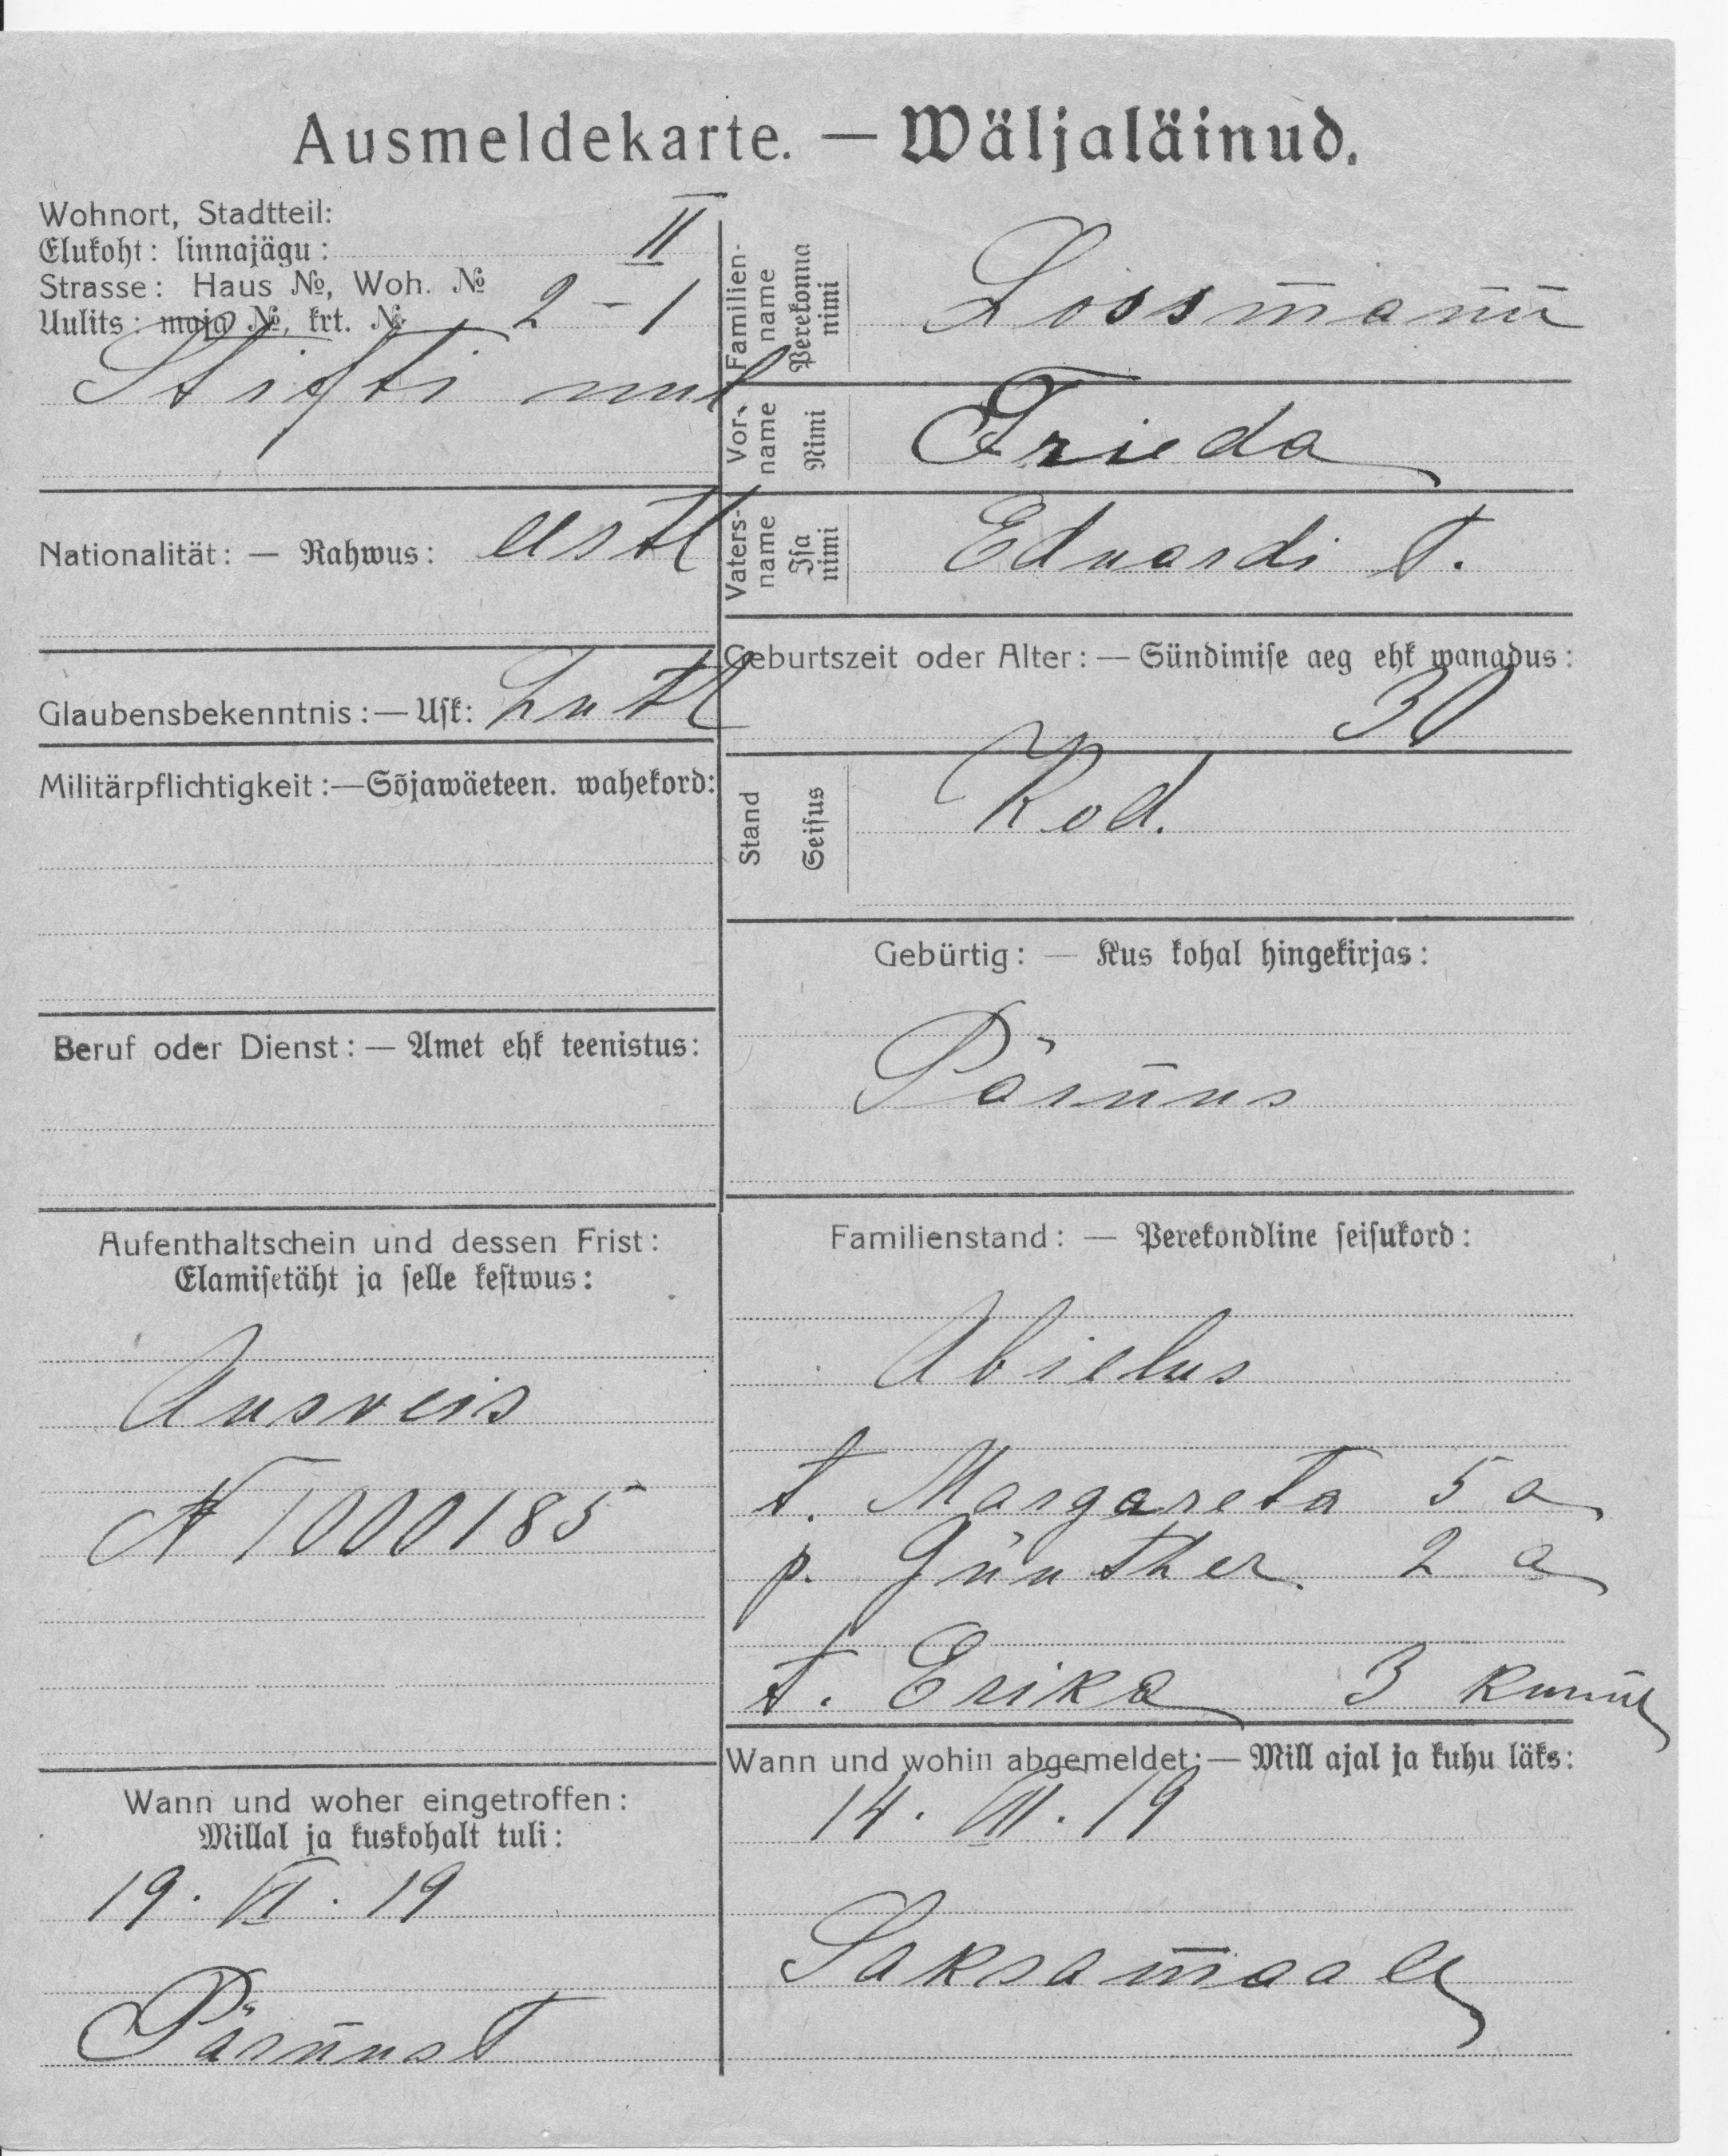 Ausmeldekarte. — Wäljaläinud.
Wohnort, Stadtteil:
Elukoht: linnajägu: II
Strasse: Haus №, Woh. №
Uulits: maja №, krt. № 2 – 1
Stifti
Nationalität: — Rahwus: eestl
Glaubensbekenntnis: — Usk: Lutl
Militärpflichtigkeit: — Sõjawäeteen. wahekord:
Beruf oder Dienst: — Amet ehk teenistus:
Aufenthaltschein und dessen Frist:
Elamisetäht ja selle kestwus:
Ausveis
N T000185
Wann und woher eingetroffen:
Millal ja kuskohalt tuli:
19. VI. 19
Pärnust
Familien-
name
Perekonna
nimi
Lossmann
Vor-
name
Nimi
Frieda
Vaters-
name
Isa
nimi
Eduardi t.
Geburtszeit oder Alter: — Sündimise aeg ehk wanadus:
30
Stand
Seisus
Kod.
Gebürtig: — Kus kohal hingekirjas:
Pärnus
Familienstand: — Perekondline seisukord:
Abielus
t. Margareta 5 a
p. Günther 2 a
t. Erika 3 kuune
Wann und wohin abgemeldet: — Mill ajal ja kuhu läks:
14. VII. 19
Saksamaale